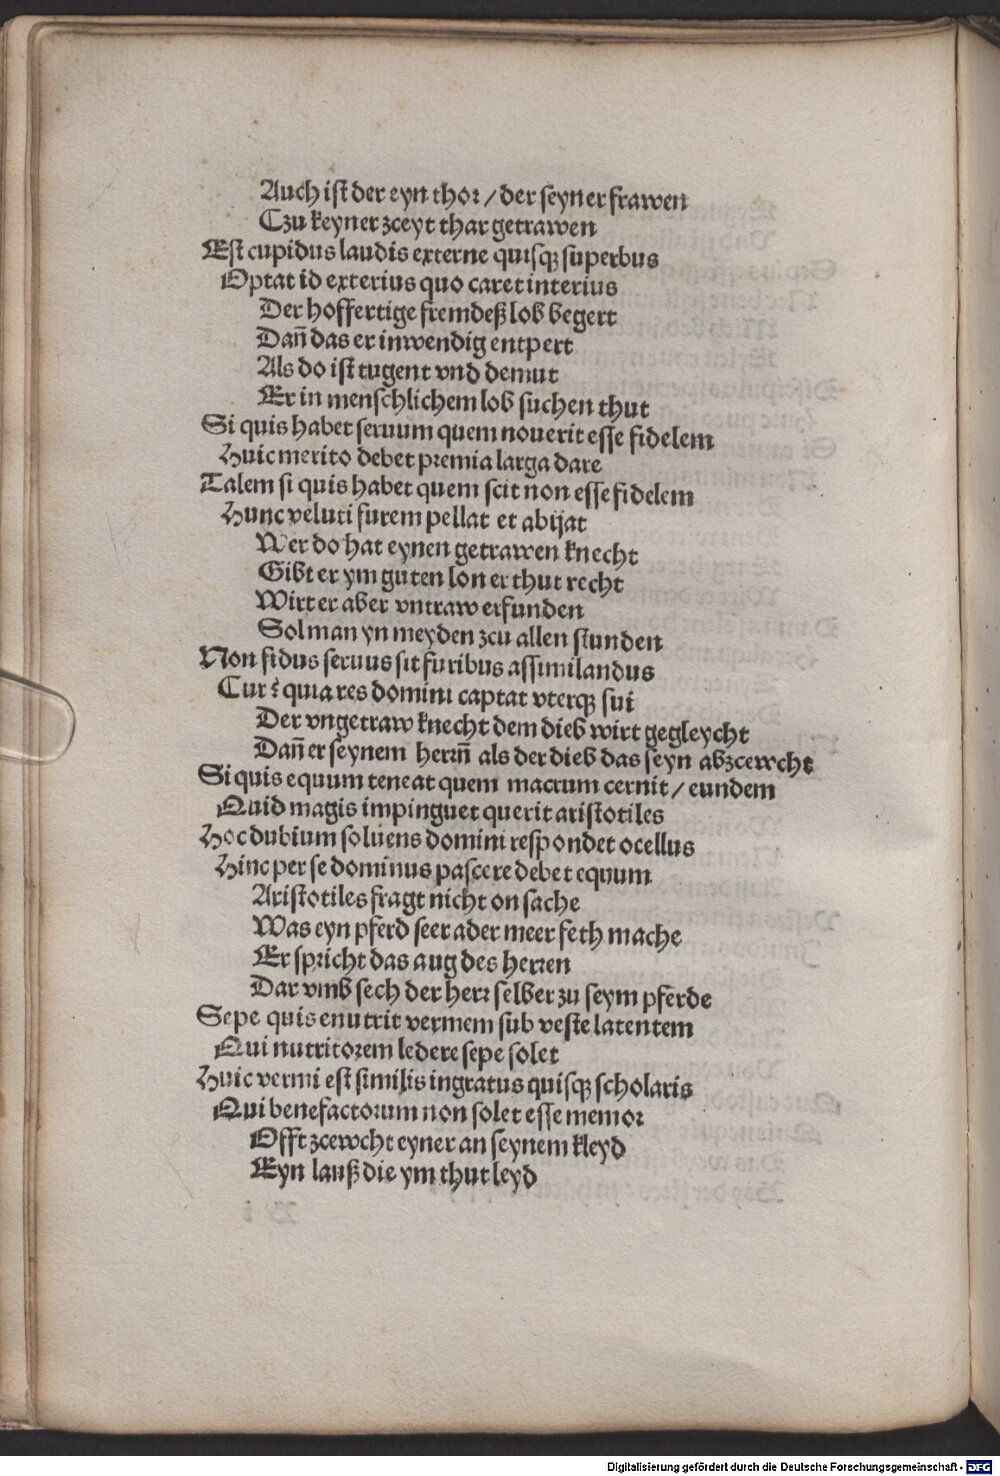 Auch ist der eyn thor / der seyner frawen
Czu keyner zceyt thar getrawen
Est cupidus laudis externe quisqꝫ superbus
Optat id exterius quo caret interius
Der hoffertige fremdeß lob begert
Dan̄ das er inwendig entpert
Als do ist tugent vnd demut
Er in menschlichem lob suchen thut
Si quis habet seruum quem nouerit esse fidelem
Huic merito debet premia larga dare
Talem si quis habet quem scit non esse fidelem
Hunc veluti furem pellat et abijat
Wer do hat eynen getrawen knecht
Gibt er ym guten lon er thut recht
Wirt er aber vntraw erfunden
Sol man yn meyden zcu allen stunden
Non fidus seruus sit furibus assimilandus
Cur? quia res domini captat vterqꝫ sui
Der vngetraw knecht dem dieb wirt gegleycht
Dan̄ er seynem herrn̄ als der dieb das seyn abzcewcht
Si quis equum teneat quem macrum cernit / eundem
Quid magis impinguet querit aristotiles
Hoc dubium soluens domini respondet ocellus
Hinc per se dominus pascere debet equum
Aristotiles fragt nicht on sache
Was eyn pferd seer ader meer feth mache
Er spricht das aug des herren
Dar vmb sech der herr selber zu seym pferde
Sepe quis enutrit vermem sub veste latentem
Qui nutritorem ledere sepe solet
Huic vermi est similis ingratus quisqꝫ scholaris
Qui benefactorum non solet esse memor
Offt zcewcht eyner an seynem kleyd
Eyn lauß die ym thut leyd
Digitalisierung gefördert durch die Deutsche Forschungsgemeinschaft - DFG